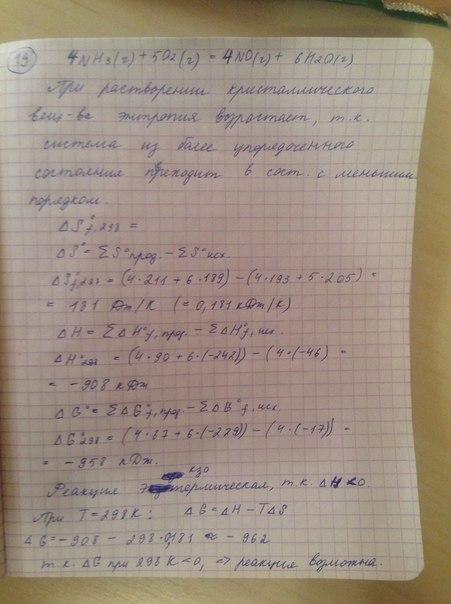 19
4NH3(г) + 5O2(г) = 4NO(г) + 6H2O(г)
При растворении кристаллического
вещ-ва энтропия возрастает, т.к.
система из более упорядоченного
состояния преходит в сост. с меньшим
порядком.
ΔS°f,298 =
ΔS° = ΣS°прод. - ΣS°исх.
ΔS°f,298 = (4·211 + 6·189) - (4·193 + 5·205) =
= 181 Дж/К (= 0,181 кДж/К)
ΔH = ΣΔH°f, прод. - ΣΔH°f, исх.
ΔH°298 = (4·90 + 6·(-242)) - (4·(-46) =
= -908 кДж
ΔG° = ΣΔG°f, прод. - ΣΔG°f, исх.
ΔG°298 = (4·87 + 6·(-229)) - (4·(-17)) =
= -958 кДж.
Реакция экзотермическая, т.к. ΔH<0.
При T=298К: ΔG = ΔH - TΔS
ΔG = -908 - 298·0,181 ≈ -962
т.к. ΔG при 298 К <0, => реакция возможна.